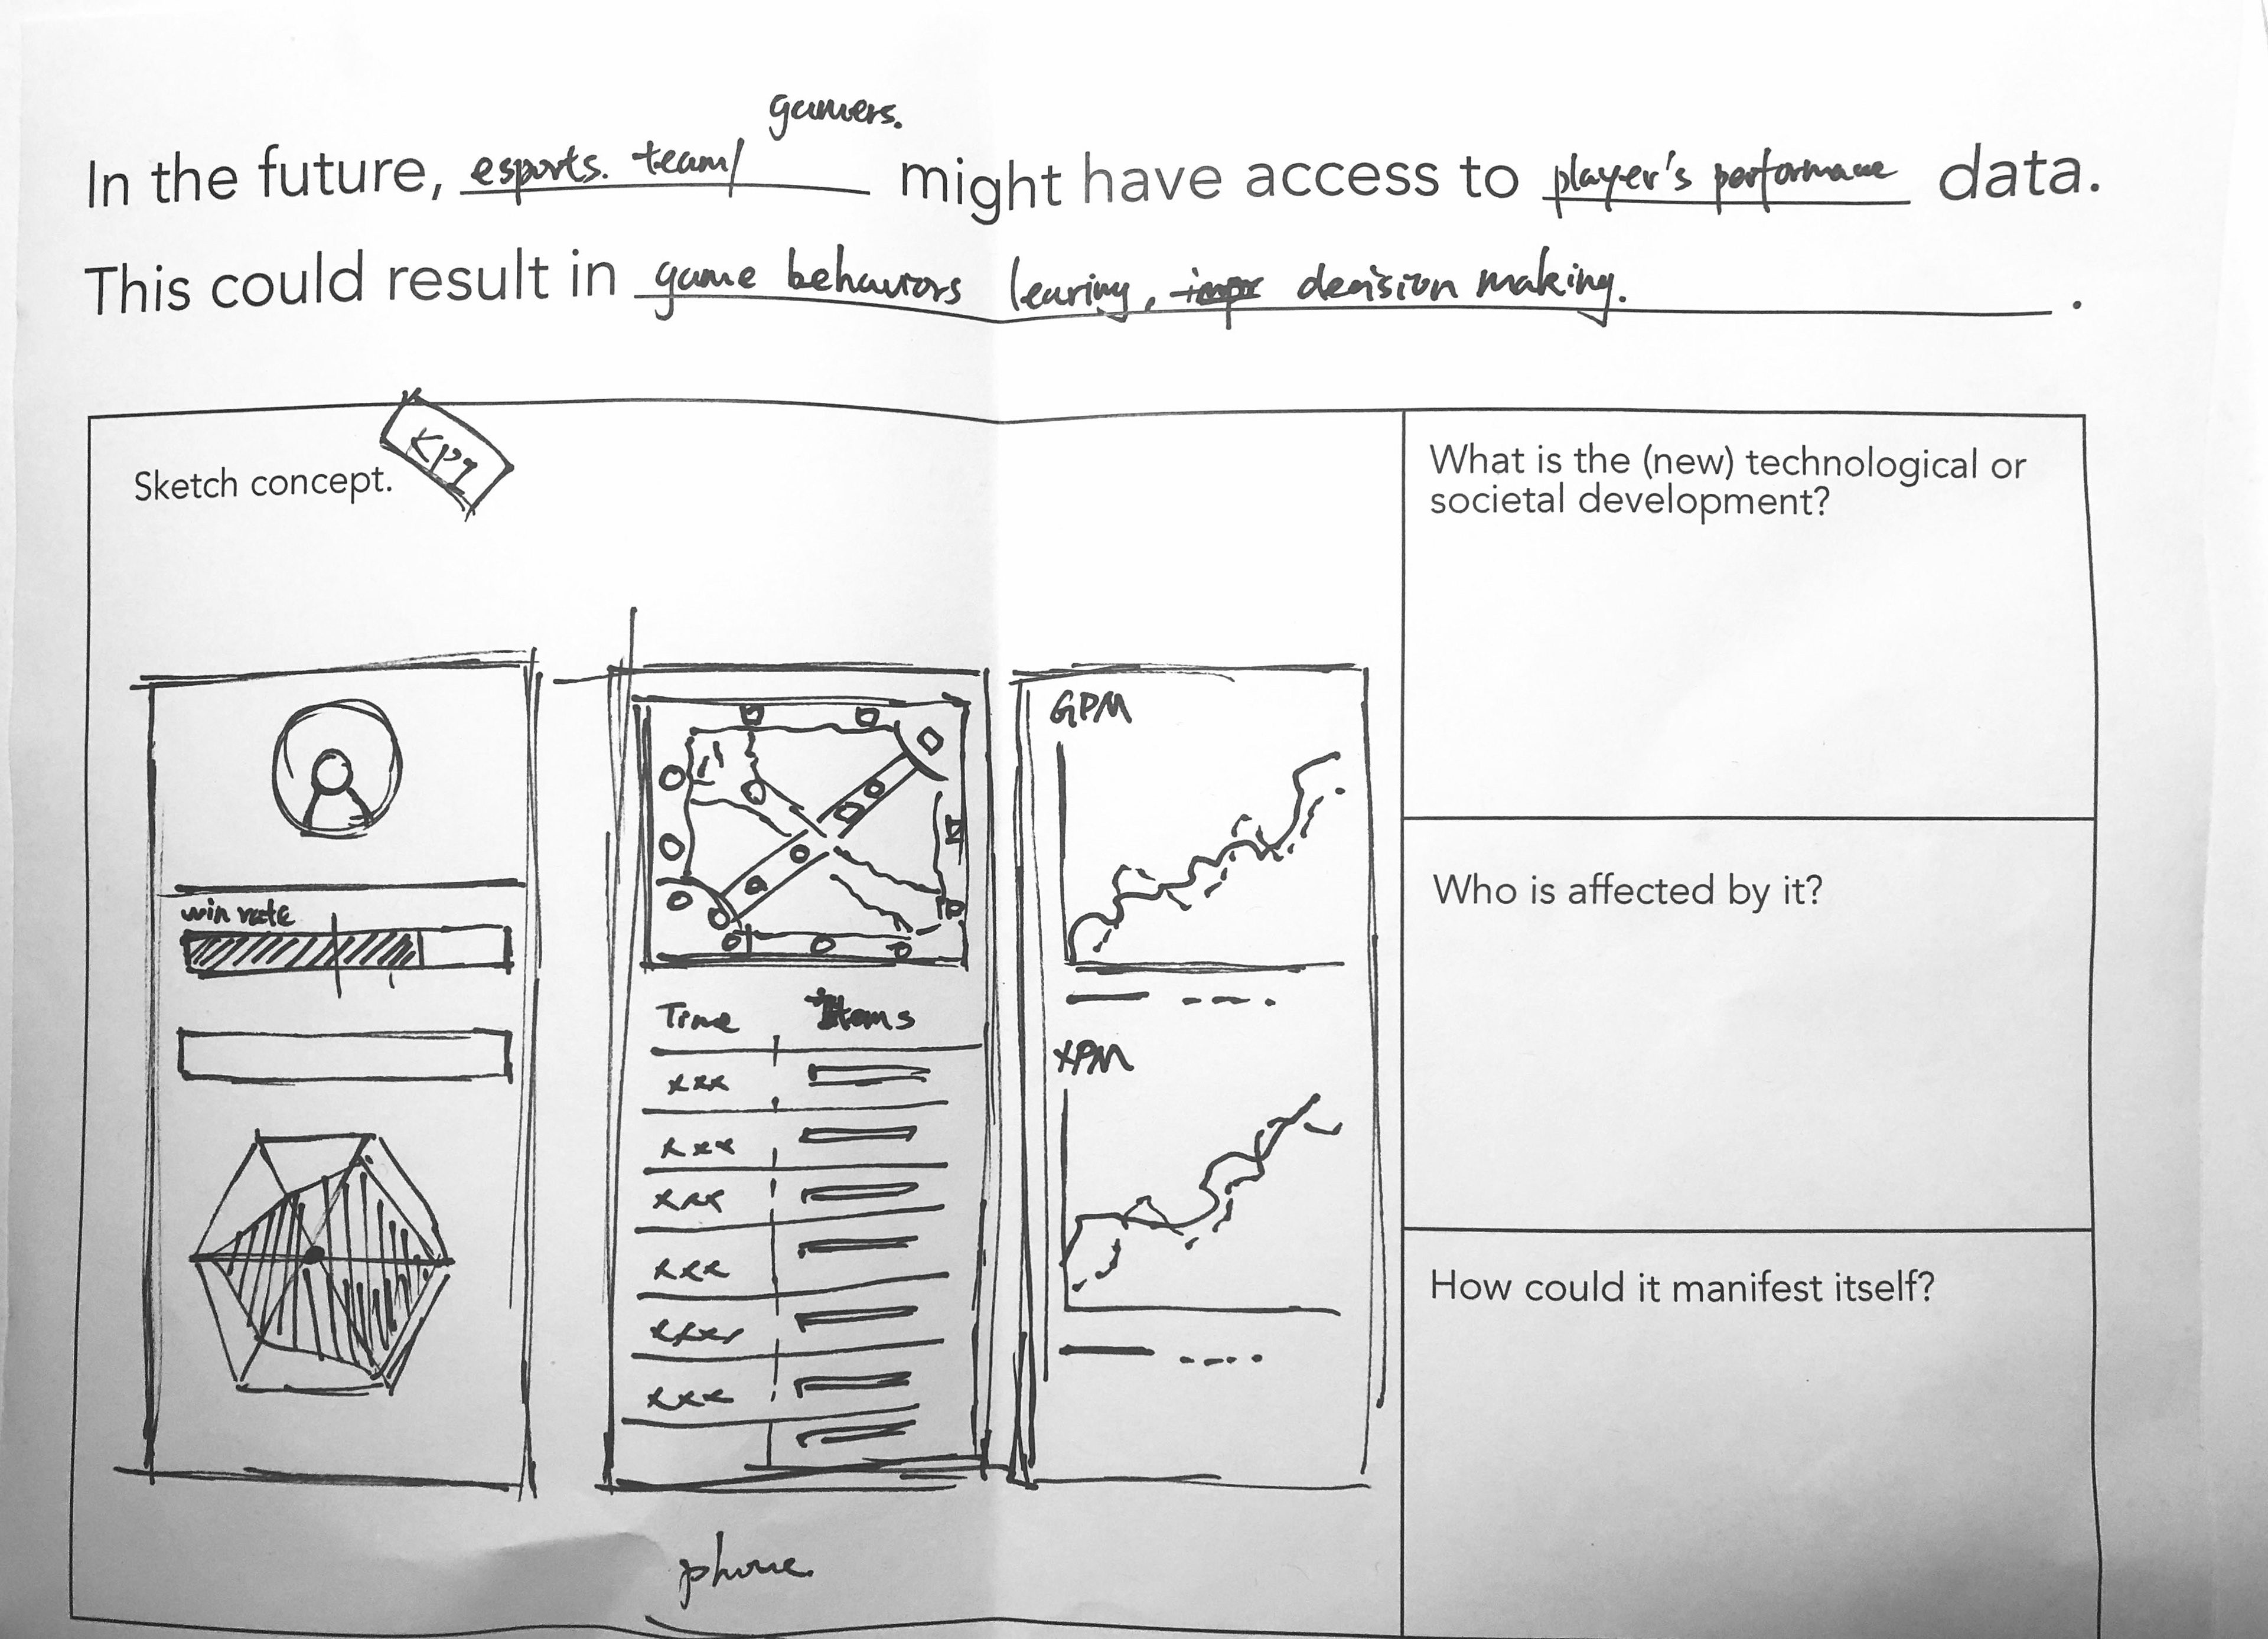 gamers.
In the future, esports. team/ might have access to player's performance data.
This could result in game behaviors learing, impr decision making. .
Sketch concept.
KPI
What is the (new) technological or
societal development?
GPM
Who is affected by it?
win rate
Time Items
xxx
xxx
xxx
xxx
xxxx
xxx
XPM
How could it manifest itself?
phone.